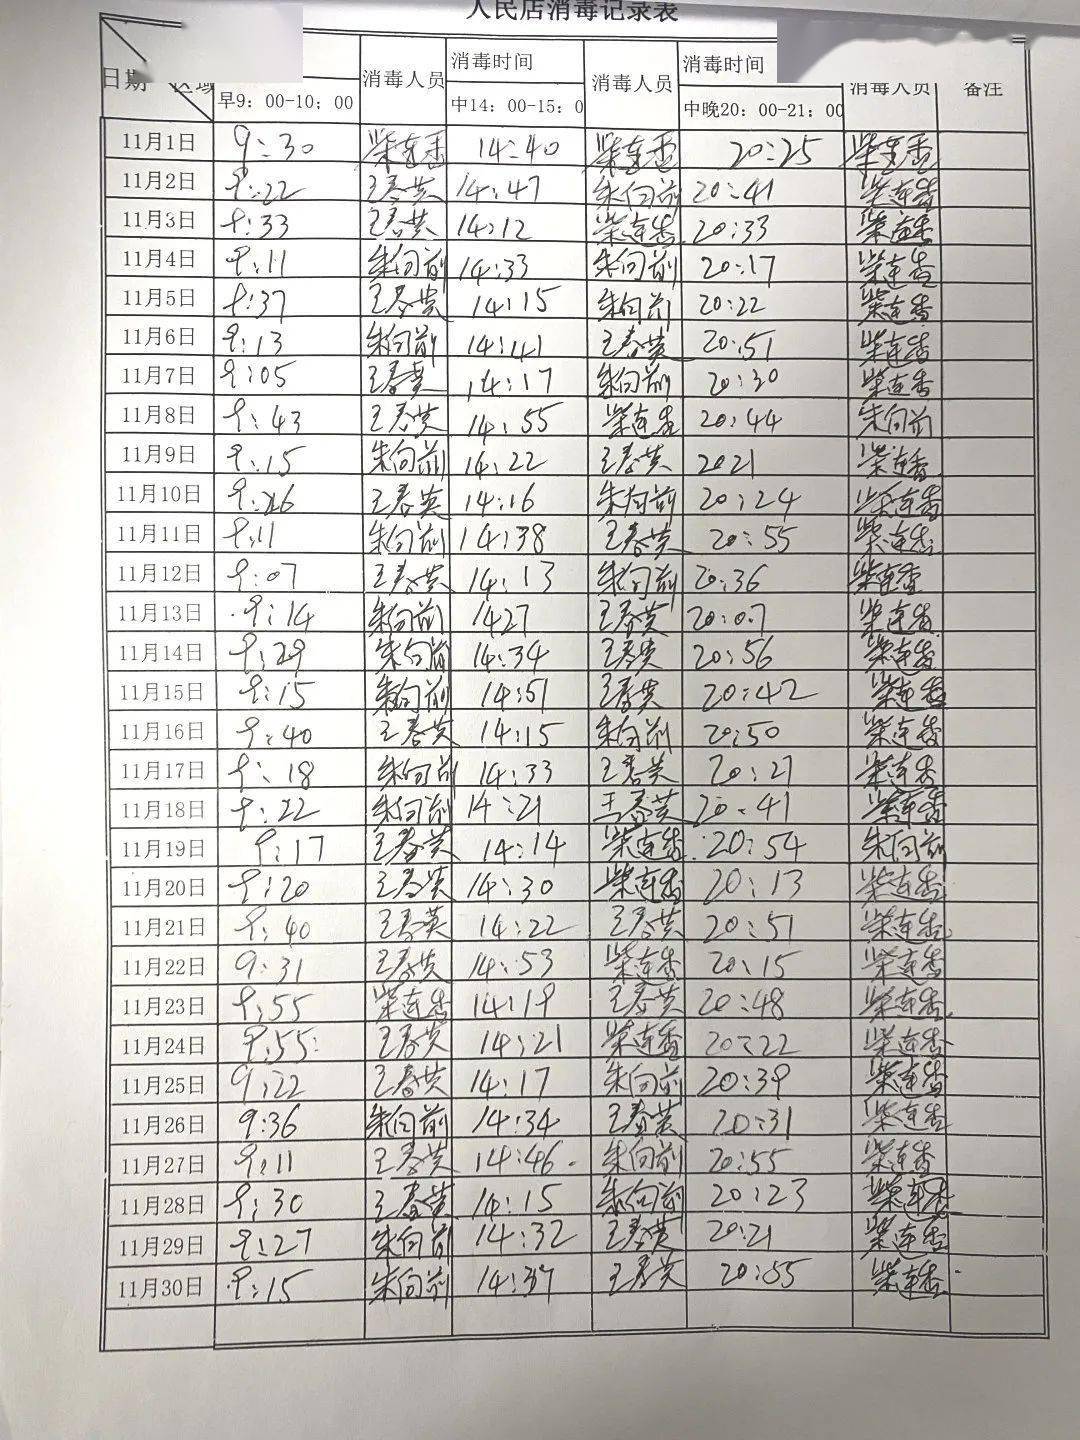 人民店消毒记录表
日期 区域 消毒人员 消毒时间 消毒人员 消毒时间 消毒人员 备注
早9：00-10：00 中14：00-15：0 中晚20：00-21：00
11月1日 9:30 柴连香 14:40 柴连香 20:25 柴连香
11月2日 9:22 王春英 14:47 朱向前 20:41 柴连香
11月3日 9:33 王春英 14:12 柴连香 20:33 柴连香
11月4日 9:11 朱向前 14:33 朱向前 20:17 柴连香
11月5日 9:37 王春英 14:15 朱向前 20:22 柴连香
11月6日 9:13 朱向前 14:41 王春英 20:51 柴连香
11月7日 9:05 王春英 14:17 朱向前 20:30 柴连香
11月8日 9:43 王春英 14:55 柴连香 20:44 朱向前
11月9日 9:15 朱向前 14:22 王春英 2021 柴连香
11月10日 9:26 王春英 14:16 朱向前 20:24 柴连香
11月11日 9:11 朱向前 14:38 王春英 20:55 柴连香
11月12日 9:07 王春英 14:13 朱向前 20:36 柴连香
11月13日 9:14 朱向前 1427 王春英 20:07 柴连香
11月14日 9:29 朱向前 14:34 王春英 20:56 柴连香
11月15日 9:15 朱向前 14:51 王春英 20:42 柴连香
11月16日 9:40 王春英 14:15 朱向前 20:50 柴连香
11月17日 9:18 朱向前 14:33 王春英 20:27 柴连香
11月18日 9:22 朱向前 14:21 王春英 20:41 柴连香
11月19日 9:17 王春英 14:14 柴连香 20:54 朱向前
11月20日 9:20 王春英 14:30 柴连香 20:13 柴连香
11月21日 9:40 王春英 14:22 王春英 20:51 柴连香
11月22日 9:31 王春英 14:53 柴连香 20:15 柴连香
11月23日 9:55 柴连香 14:19 王春英 20:48 柴连香
11月24日 9:55 王春英 14:21 柴连香 20:22 柴连香
11月25日 9:22 王春英 14:17 朱向前 20:39 柴连香
11月26日 9:36 朱向前 14:34 王春英 20:31 柴连香
11月27日 9:11 王春英 14:46 朱向前 20:55 柴连香
11月28日 9:30 王春英 14:15 朱向前 20:23 柴连香
11月29日 9:27 朱向前 14:32 王春英 20:21 柴连香
11月30日 9:15 朱向前 14:37 王春英 20:55 柴连香